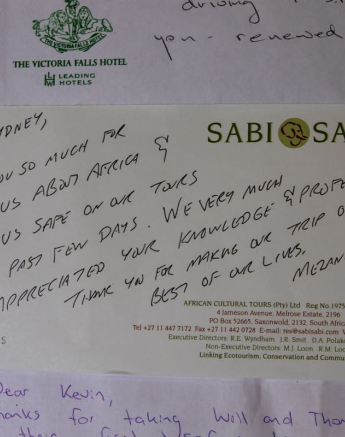 driving
you - renewed
THE VICTORIA FALLS HOTEL
LEADING
HOTELS
SABI SA
YDNEY,
OU SO MUCH FOR
US ABOUT AFRICA &
US SAFE ON OUR TOURS
PAST FEW DAYS. WE VERY MUCH
APPRECIATED YOUR KNOWLEDGE & PROFE
THANK YOU FOR MAKING OUR TRIP O
BEST OF OUR LIVES.
AFRICAN CULTURAL TOURS (Pty) Ltd Reg No 1975
4 Jameson Avenue, Melrose Estate, 2196
PO Box 52665, Saxonwold, 2132, South Africa
Tel +27 11 447 7172 Fax +27 11 442 0728 E-mail: res@sabisabi.com
Executive Directors: R.E. Wyndham J.R. Smit D.A. Polak
Non-Executive Directors: M.J. Loon R.M. Loo
Linking Ecotourism, Conservation and Commu
Dear Kevin,
hanks for taking Will and Thom